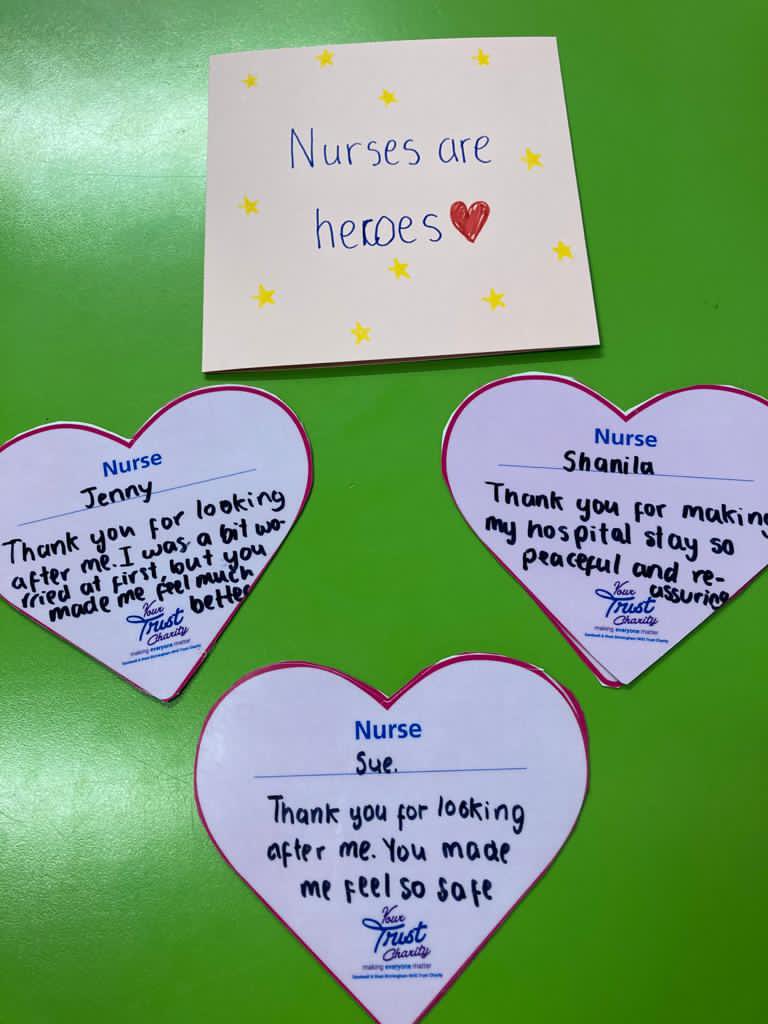 Nurses are
heroes
Nurse
Jenny
Thank you for looking
after me. I was a bit wo-
rried at first, but you
made me feel much
better
Your
Trust
Charity
making everyone matter
Sandwell & West Birmingham NHS Trust Charity
Nurse
Shanila
Thank you for making
my hospital stay so
peaceful and re-
assuring
Your
Trust
Charity
making everyone matter
Sandwell & West Birmingham NHS Trust Charity
Nurse
Sue.
Thank you for looking
after me. You made
me feel so safe
Your
Trust
Charity
making everyone matter
Sandwell & West Birmingham NHS Trust Charity